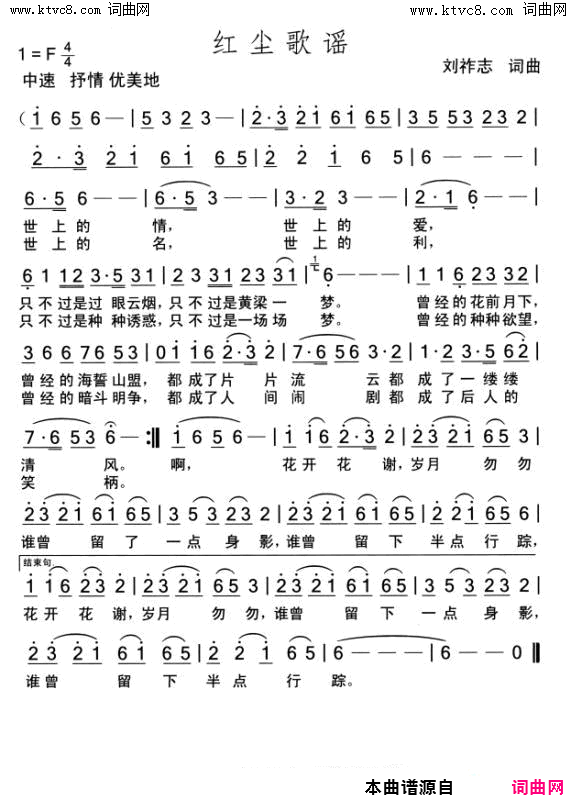 www.ktvc8.com 词曲网 www.ktvc8.com 词曲网
红尘歌谣
1=F 4/4
刘祚志 词曲
中速 抒情 优美地
(1 6 5 6 — — | 5 3 2 3 — — | 2·3 21 61 65 | 35 53 23 2 |
2·3 21 61 65 | 2 2 1 6 5 | 6 — — — )
6·5 6 — — | 6·5 3 — — | 3·2 3 — — | 2·1 6 — — |
世上的 情, 世上的 爱,
世上的 名, 世上的 利,
6 1 12 3·5 31 | 2 2 31 23 31 | 6 — — — | 1 1 6 23 32 |
只不过是过 眼云烟,只不过是黄梁一 梦。 曾经的花前月下,
只不过是种 种诱惑,只不过是一场场 梦。 曾经的种种欲望,
3 6 6 76 53 | 01 16 2·3 | 7·6 56 3·2 | 1·3 5 62 |
曾经的海誓山盟, 都成了片 片流 云都 成了一缕缕
曾经的暗斗明争, 都成了人 间闹 剧都 成了后人的
7·6 53 6 — :‖ 1 6 5 6 — | 11 16 2·3 2 | 23 21 65 3 |
清 风。 啊, 花开 花 谢,岁月 匆匆
笑 柄。
23 21 61 65 | 35 53 23 2 | 23 21 61 65 | 22 16 5 6 |
谁曾 留了 一点身影,谁曾 留下 半点行踪,
结束句
11 16 23 2 | 23 21 65 3 | 23 21 61 65 | 35 53 23 2 |
花开花谢,岁月 匆匆,谁曾 留下 一点身影,
23 21 61 65 | 22 1 65 | 6 — — — | 6 — — 0 ‖
谁曾 留下半点 行踪。
本曲谱源自 词曲网
www.ktvc8.com